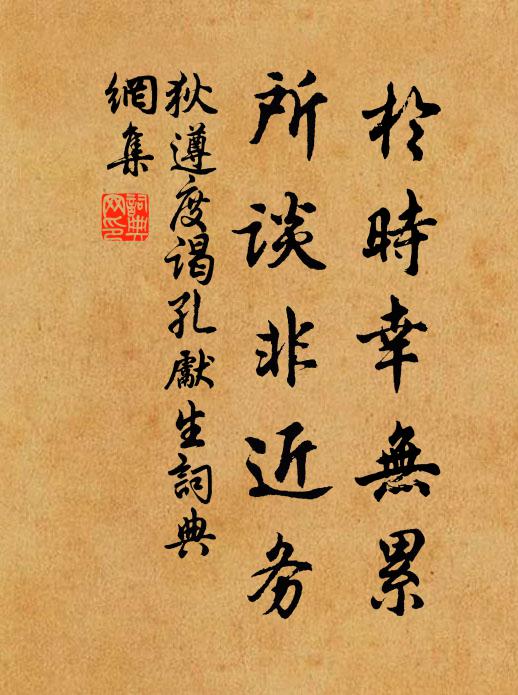 於時幸無累
所談非近务
狄遵度谒孔獻生詞典
網集
詞典
网印